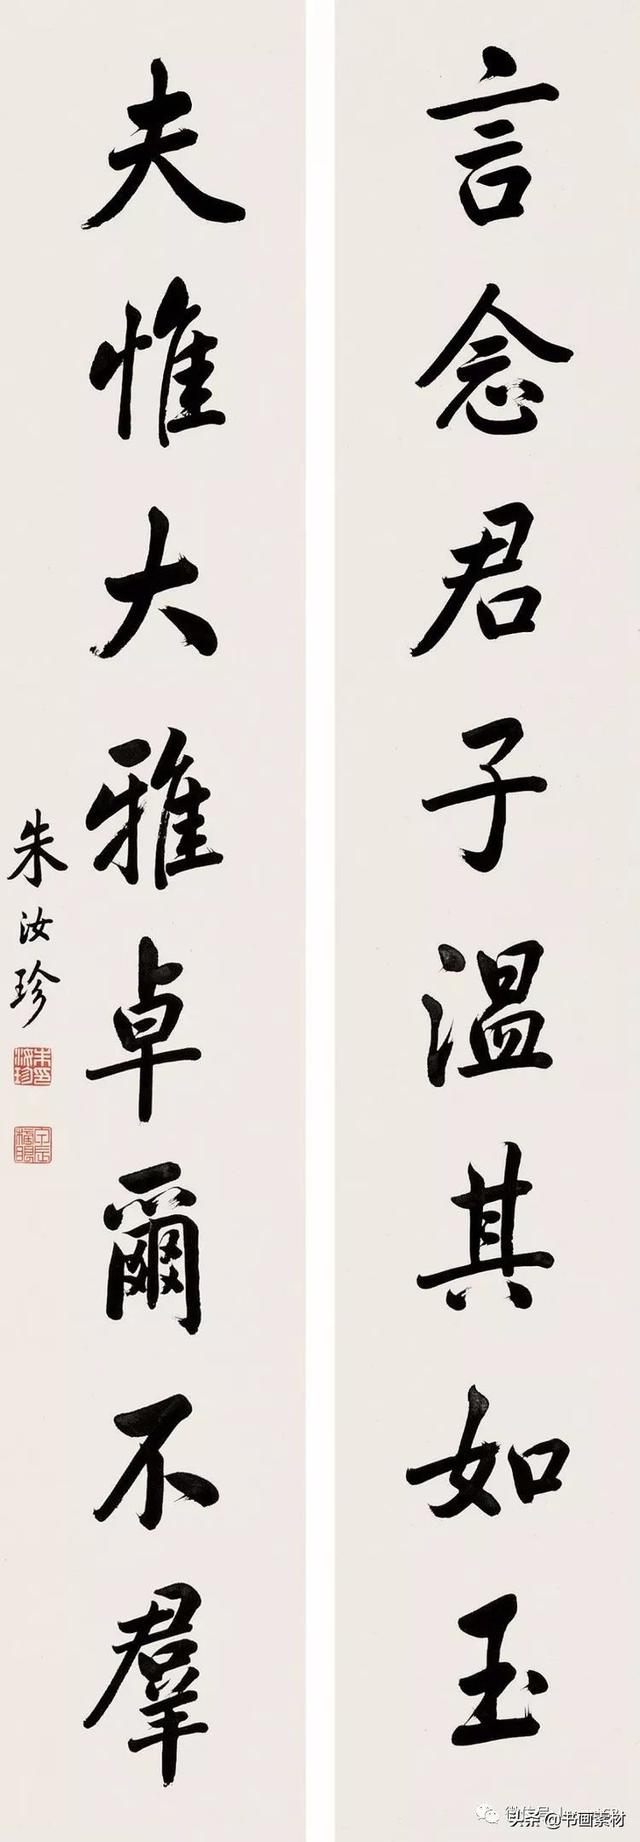 言念君子溫其如玉
夫惟大雅卓爾不羣
朱汝珍
头条@书画素材